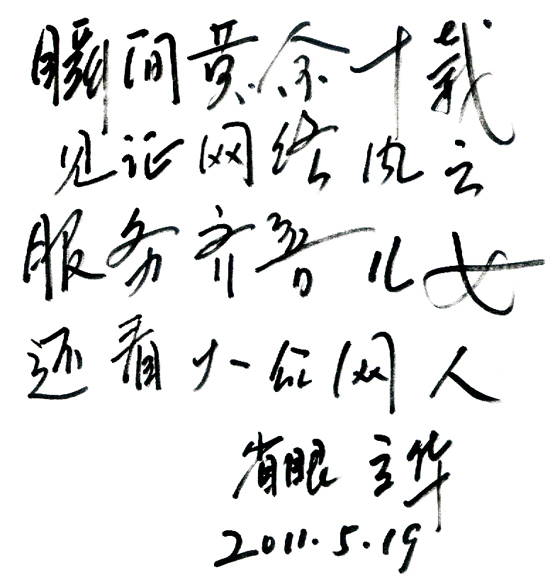 瞬间余十载
见证网络风云
服务齐鲁儿女
还看大众网人
省眼华
2011.5.19